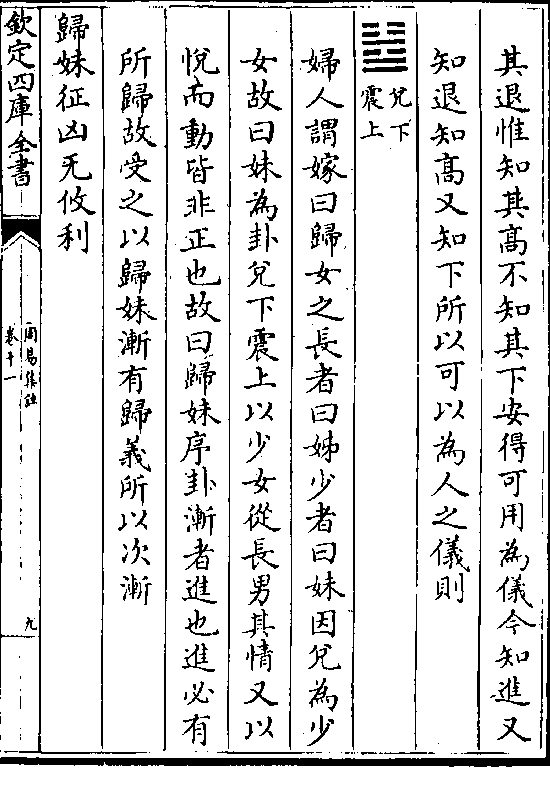 其退惟知其高不知其下安得可用為儀今知進又
知退知高又知下所以可以為人之儀則
兌下
震上
婦人謂嫁曰歸女之長者曰姊少者曰妹因兌為少
女故曰妹為卦兌下震上以少女從長男其情又以
悅而動皆非正也故曰歸妹序卦漸者進也進必有
所歸故受之以歸妹漸有歸義所以次漸
歸妹征凶无攸利
欽定四庫全書
周易集註
卷十一
九